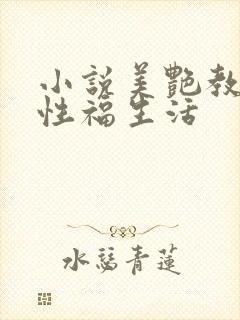 小說美艷教
性福生活
水瑟青蓮